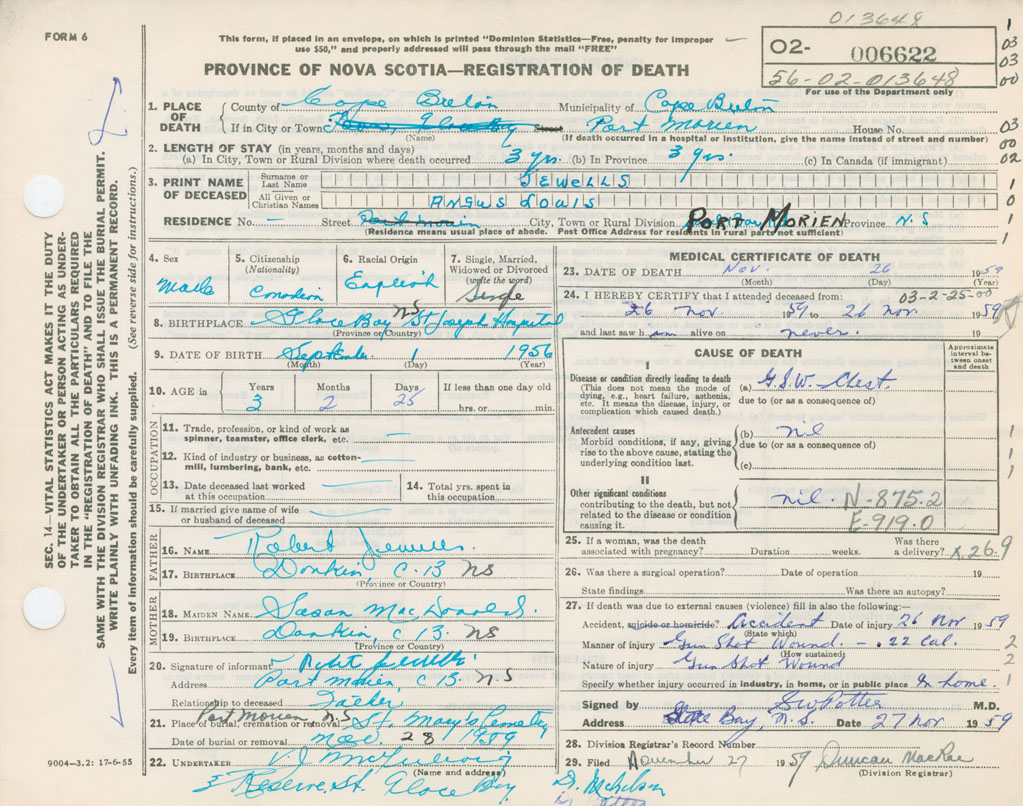 013648
FORM 6
This form, if placed in an envelope, on which is printed "Dominion Statistics—Free, penalty for improper
use $50," and properly addressed will pass through the mail "FREE"
02- 006622
56-02-013648
For use of the Department only
PROVINCE OF NOVA SCOTIA—REGISTRATION OF DEATH
1. PLACE OF DEATH
County of Cape Breton Municipality of Cape Breton
If in City or Town Town, Glace Bay Street Port Morien House No.
(Name) (If death occurred in a hospital or institution, give the name instead of street and number)
2. LENGTH OF STAY (in years, months and days)
(a) In City, Town or Rural Division where death occurred 3 yrs. (b) In Province 3 yrs. (c) In Canada (if immigrant)
3. PRINT NAME OF DECEASED
Surname or Last Name JEWELLS
All Given or Christian Names ANGUS LOUIS
RESIDENCE No. — Street Port Morien City, Town or Rural Division PORT MORIEN Province N.S
(Residence means usual place of abode. Post Office Address for residents in rural parts not sufficient)
4. Sex
Male
5. Citizenship
(Nationality)
Canadian
6. Racial Origin
English
7. Single, Married,
Widowed or Divorced
(write the word)
Single
8. BIRTHPLACE Glace Bay NS St Joseph Hospital
(Province or Country)
9. DATE OF BIRTH September 1 1956
(Month) (Day) (Year)
10. AGE in
Years Months Days If less than one day old
3 2 25 hrs. or min.
OCCUPATION
11. Trade, profession, or kind of work as
spinner, teamster, office clerk, etc. —
12. Kind of industry or business, as cotton-
mill, lumbering, bank, etc. —
13. Date deceased last worked
at this occupation —
14. Total yrs. spent in
this occupation
15. If married give name of wife
or husband of deceased —
FATHER
16. NAME Robert Jewells
17. BIRTHPLACE Donkin, C.B. NS
(Province or Country)
MOTHER
18. MAIDEN NAME Susan MacDonald
19. BIRTHPLACE Donkin, C.B. NS
(Province or Country)
20. Signature of informant Robt Jewells
Address Port Morien, C.B. N.S
Relationship to deceased Father
21. Place of burial, cremation or removal Port Morien N.S St. Mary's Cemetery
Date of burial or removal Nov. 28 1959
22. UNDERTAKER V.J. McGillivray
(Name and address)
Reserve St. Glace Bay
MEDICAL CERTIFICATE OF DEATH
23. DATE OF DEATH Nov. 26 1959
(Month) (Day) (Year)
24. I HEREBY CERTIFY that I attended deceased from: 03-2-25-00
26 Nov 1959 to 26 Nov 1959
and last saw him alive on never. 19
CAUSE OF DEATH
Approximate
interval be-
tween onset
and death
I
Disease or condition directly leading to death
(This does not mean the mode of
dying, e.g., heart failure, asthenia,
etc. It means the disease, injury, or
complication which caused death.)
(a) G.S.W. Chest
due to (or as a consequence of)
Antecedent causes
Morbid conditions, if any, giving
rise to the above cause, stating the
underlying condition last.
(b) nil
due to (or as a consequence of)
(c)
II
Other significant conditions
contributing to the death, but not
related to the disease or condition
causing it.
nil. N-875.2
E-919.0
25. If a woman, was the death
associated with pregnancy? Duration weeks. Was there
a delivery? A.26.9
26. Was there a surgical operation? Date of operation 19
State findings Was there an autopsy?
27. If death was due to external causes (violence) fill in also the following:—
Accident, suicide or homicide? Accident Date of injury 26 Nov 1959
(State which)
Manner of injury Gun Shot Wound — .22 Cal.
(How sustained)
Nature of injury Gun Shot Wound
Specify whether injury occurred in industry, in home, or in public place In home.
Signed by S W Potter M.D.
Address Glace Bay, N.S. Date 27 Nov 1959
28. Division Registrar's Record Number
29. Filed November 27 1959 Duncan MacRae
(Division Registrar)
SEC. 14—VITAL STATISTICS ACT MAKES IT THE DUTY
OF THE UNDERTAKER OR PERSON ACTING AS UNDER-
TAKER TO OBTAIN ALL THE PARTICULARS REQUIRED
IN THE "REGISTRATION OF DEATH" AND TO FILE THE
SAME WITH THE DIVISION REGISTRAR WHO SHALL ISSUE THE BURIAL PERMIT.
WRITE PLAINLY WITH UNFADING INK. THIS IS A PERMANENT RECORD.
Every item of information should be carefully supplied. (See reverse side for instructions.)
9004—3.2: 17-6-55
1
03
03
00
03
00
02
1
0
1
1
1
1
1
1
2
2
1